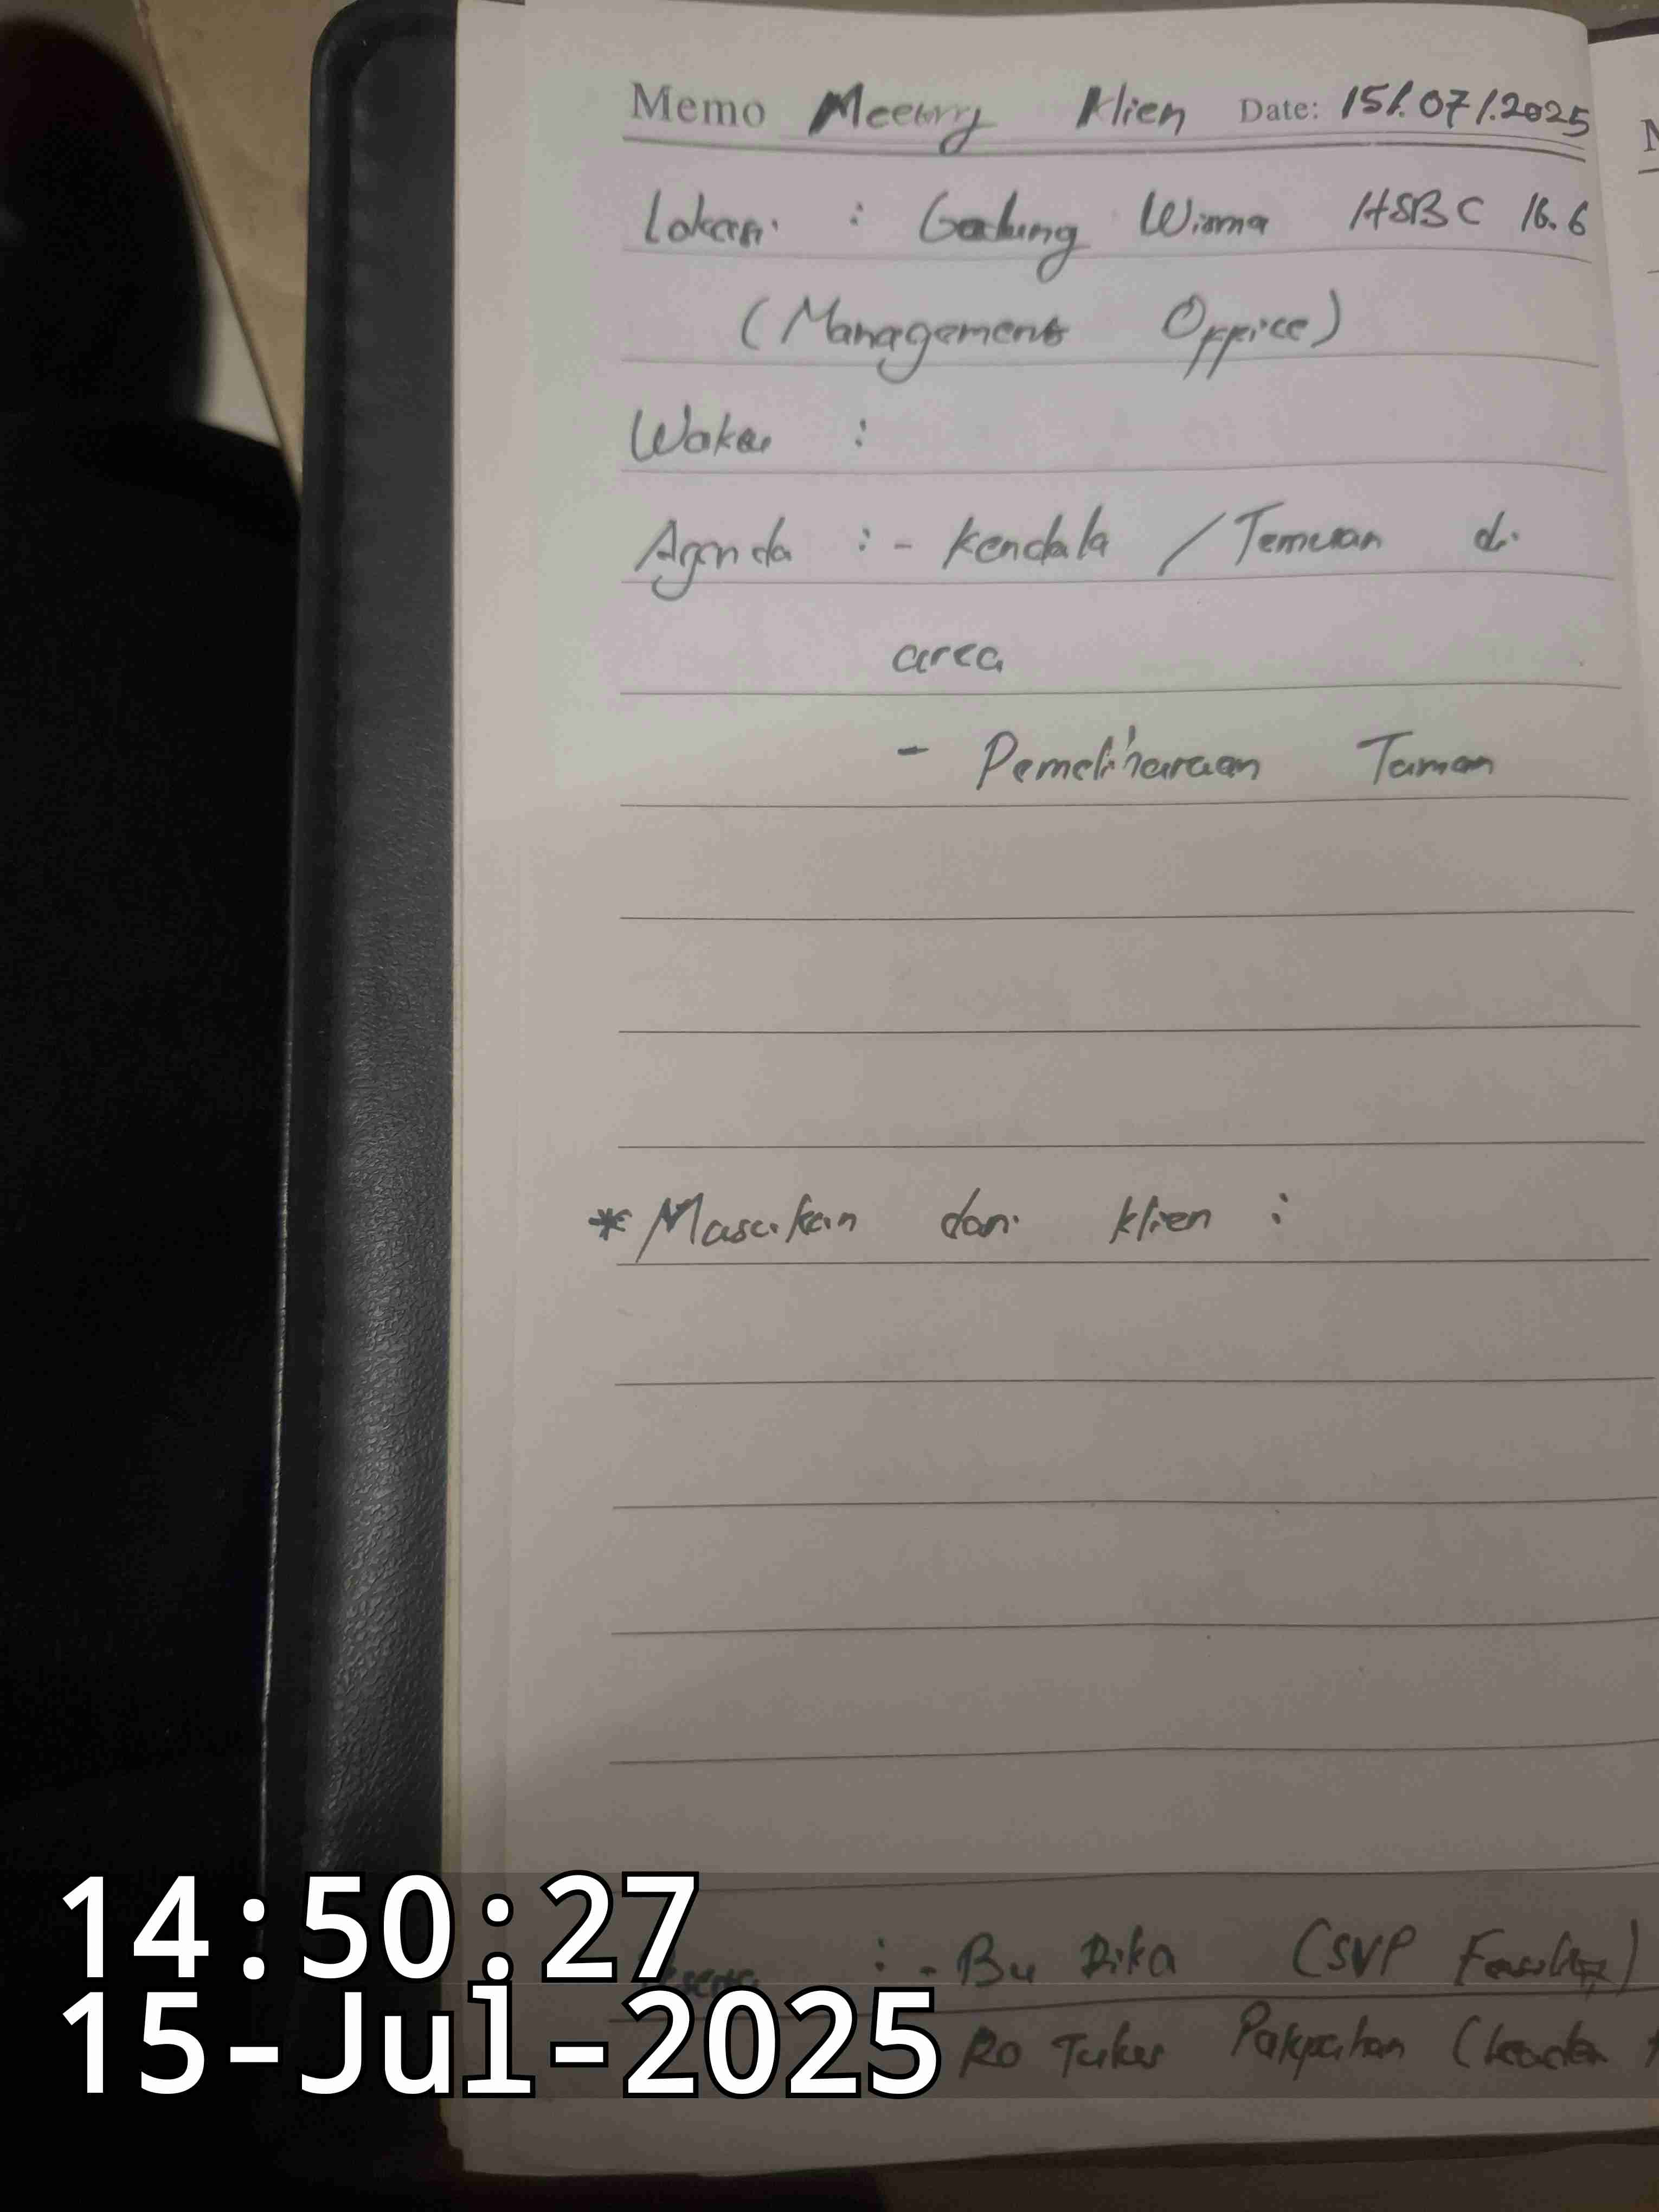 Memo Meeting Klien Date: 15/.07/.2025
Lokasi : Gedung Wisma HSBC 16.6
(Management Office)
Waktu :
Agenda : - Kendala / Temuan di
area
- Pemeliharaan Taman
* Masukan dari klien :
: - Bu Rika (SVP
Pakpahan (Leader
14:50:27
15-Jul-2025